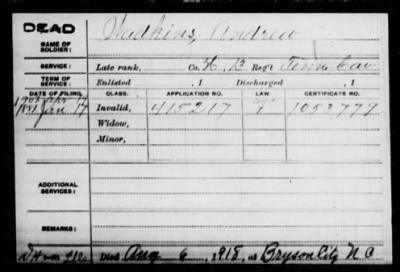 DEAD
NAME OF SOLDIER: Hadkins, Andrew
SERVICE: Late rank, Co. H, 13 Reg't Tenn Cav
TERM OF SERVICE: Enlisted , 1 Discharged , 1
DATE OF FILING. CLASS. APPLICATION NO. LAW. CERTIFICATE NO.
Jan 14 Invalid, 415217 1052779
Widow,
Minor,
ADDITIONAL SERVICES:
REMARKS:
Died Aug 6, 1918, at Bryson City N C